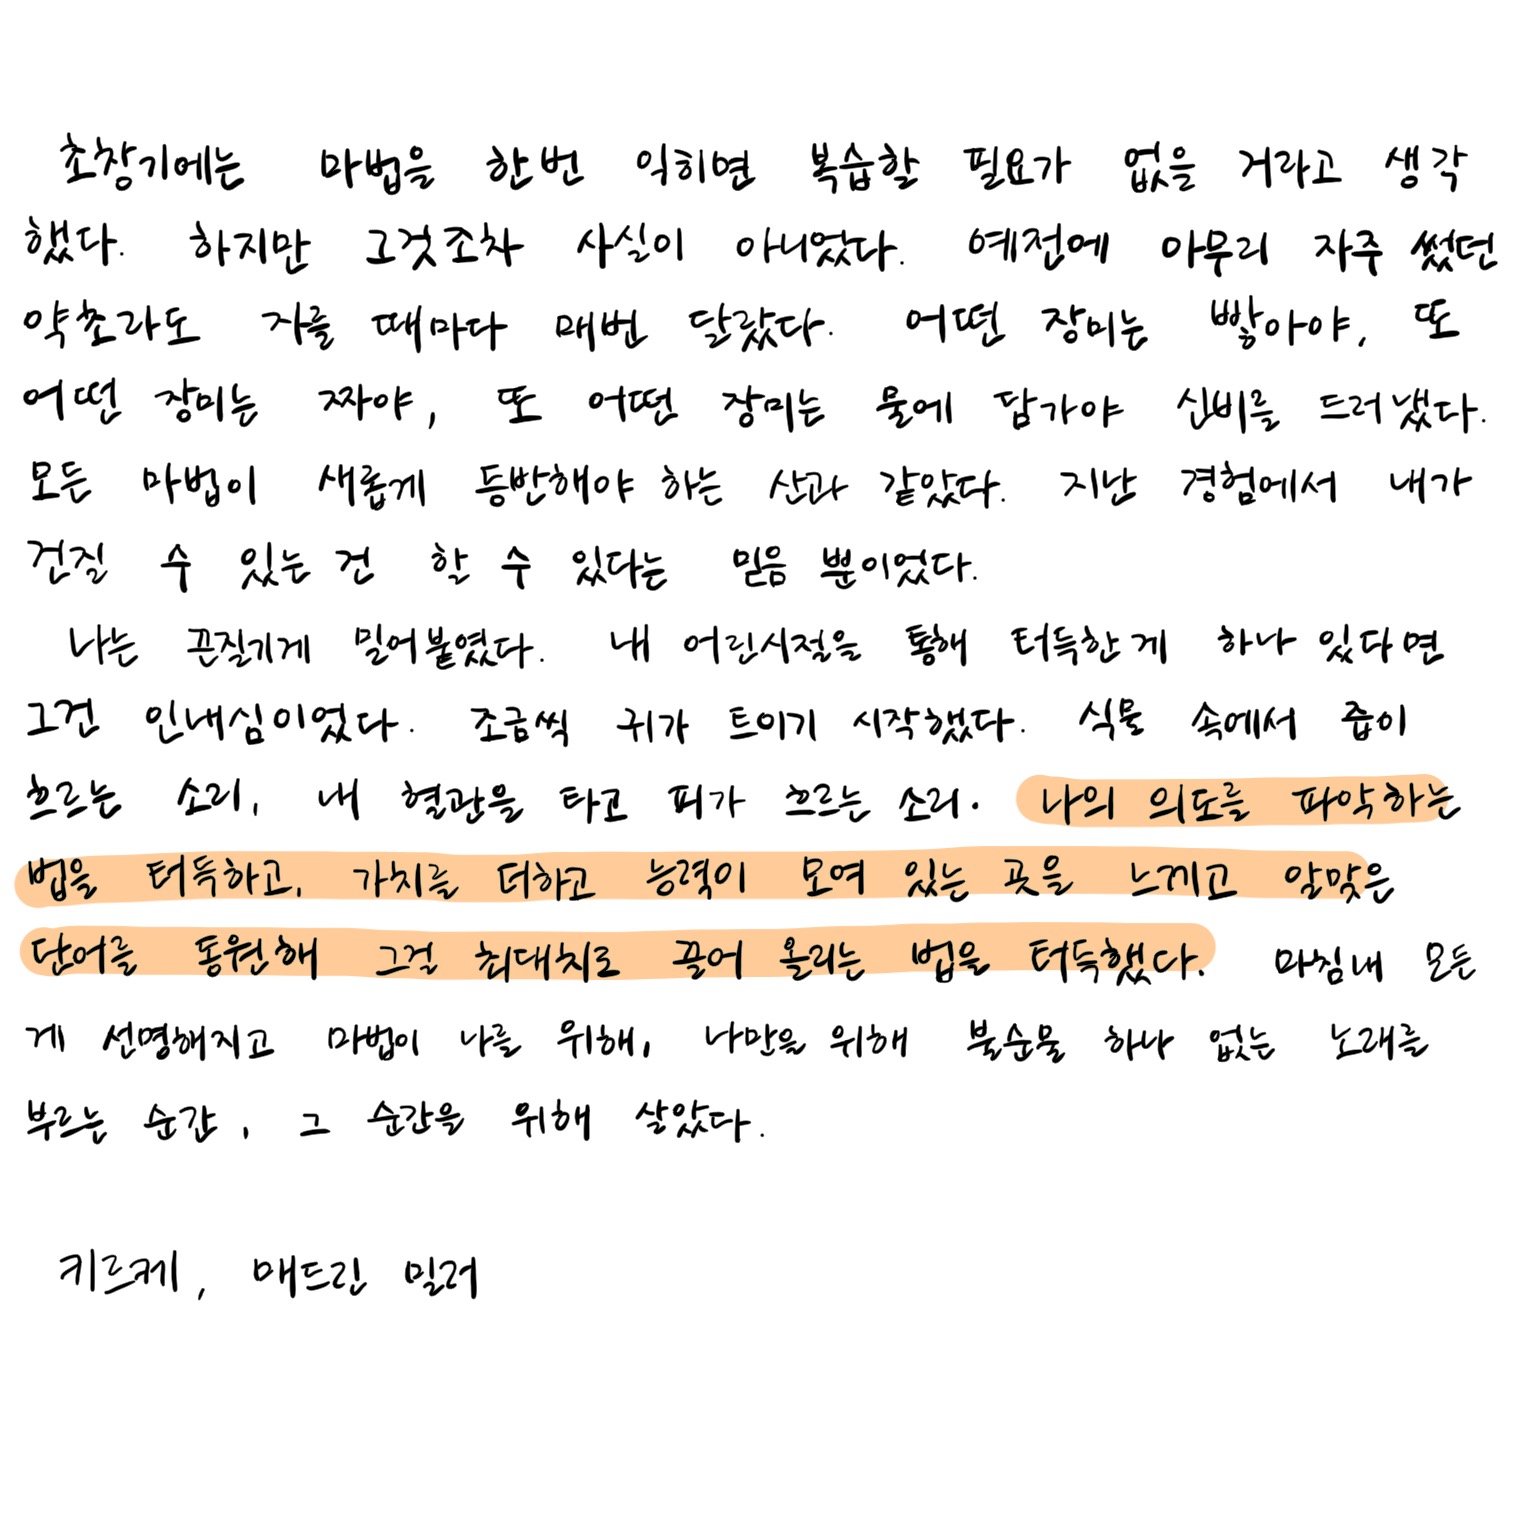 초창기에는 마법을 한번 익히면 복습할 필요가 없을 거라고 생각
했다. 하지만 그것조차 사실이 아니었다. 예전에 아무리 자주 썼던
약초라도 자를 때마다 매번 달랐다. 어떤 장미는 빻아야, 또
어떤 장미는 짜야, 또 어떤 장미는 물에 담가야 신비를 드러냈다.
모든 마법이 새롭게 등반해야 하는 산과 같았다. 지난 경험에서 내가
건질 수 있는 건 할 수 있다는 믿음 뿐이었다.
나는 끈질기게 밀어붙였다. 내 어린시절을 통해 터득한 게 하나 있다면
그건 인내심이었다. 조금씩 귀가 트이기 시작했다. 식물 속에서 즙이
흐르는 소리, 내 혈관을 타고 피가 흐르는 소리. 나의 의도를 파악하는
법을 터득하고, 가치를 더하고 능력이 모여 있는 곳을 느끼고 알맞은
단어를 동원해 그걸 최대치로 끌어 올리는 법을 터득했다. 마침내 모든
게 선명해지고 마법이 나를 위해, 나만을 위해 불순물 하나 없는 노래를
부르는 순간, 그 순간을 위해 살았다.
키르케, 매드린 밀러